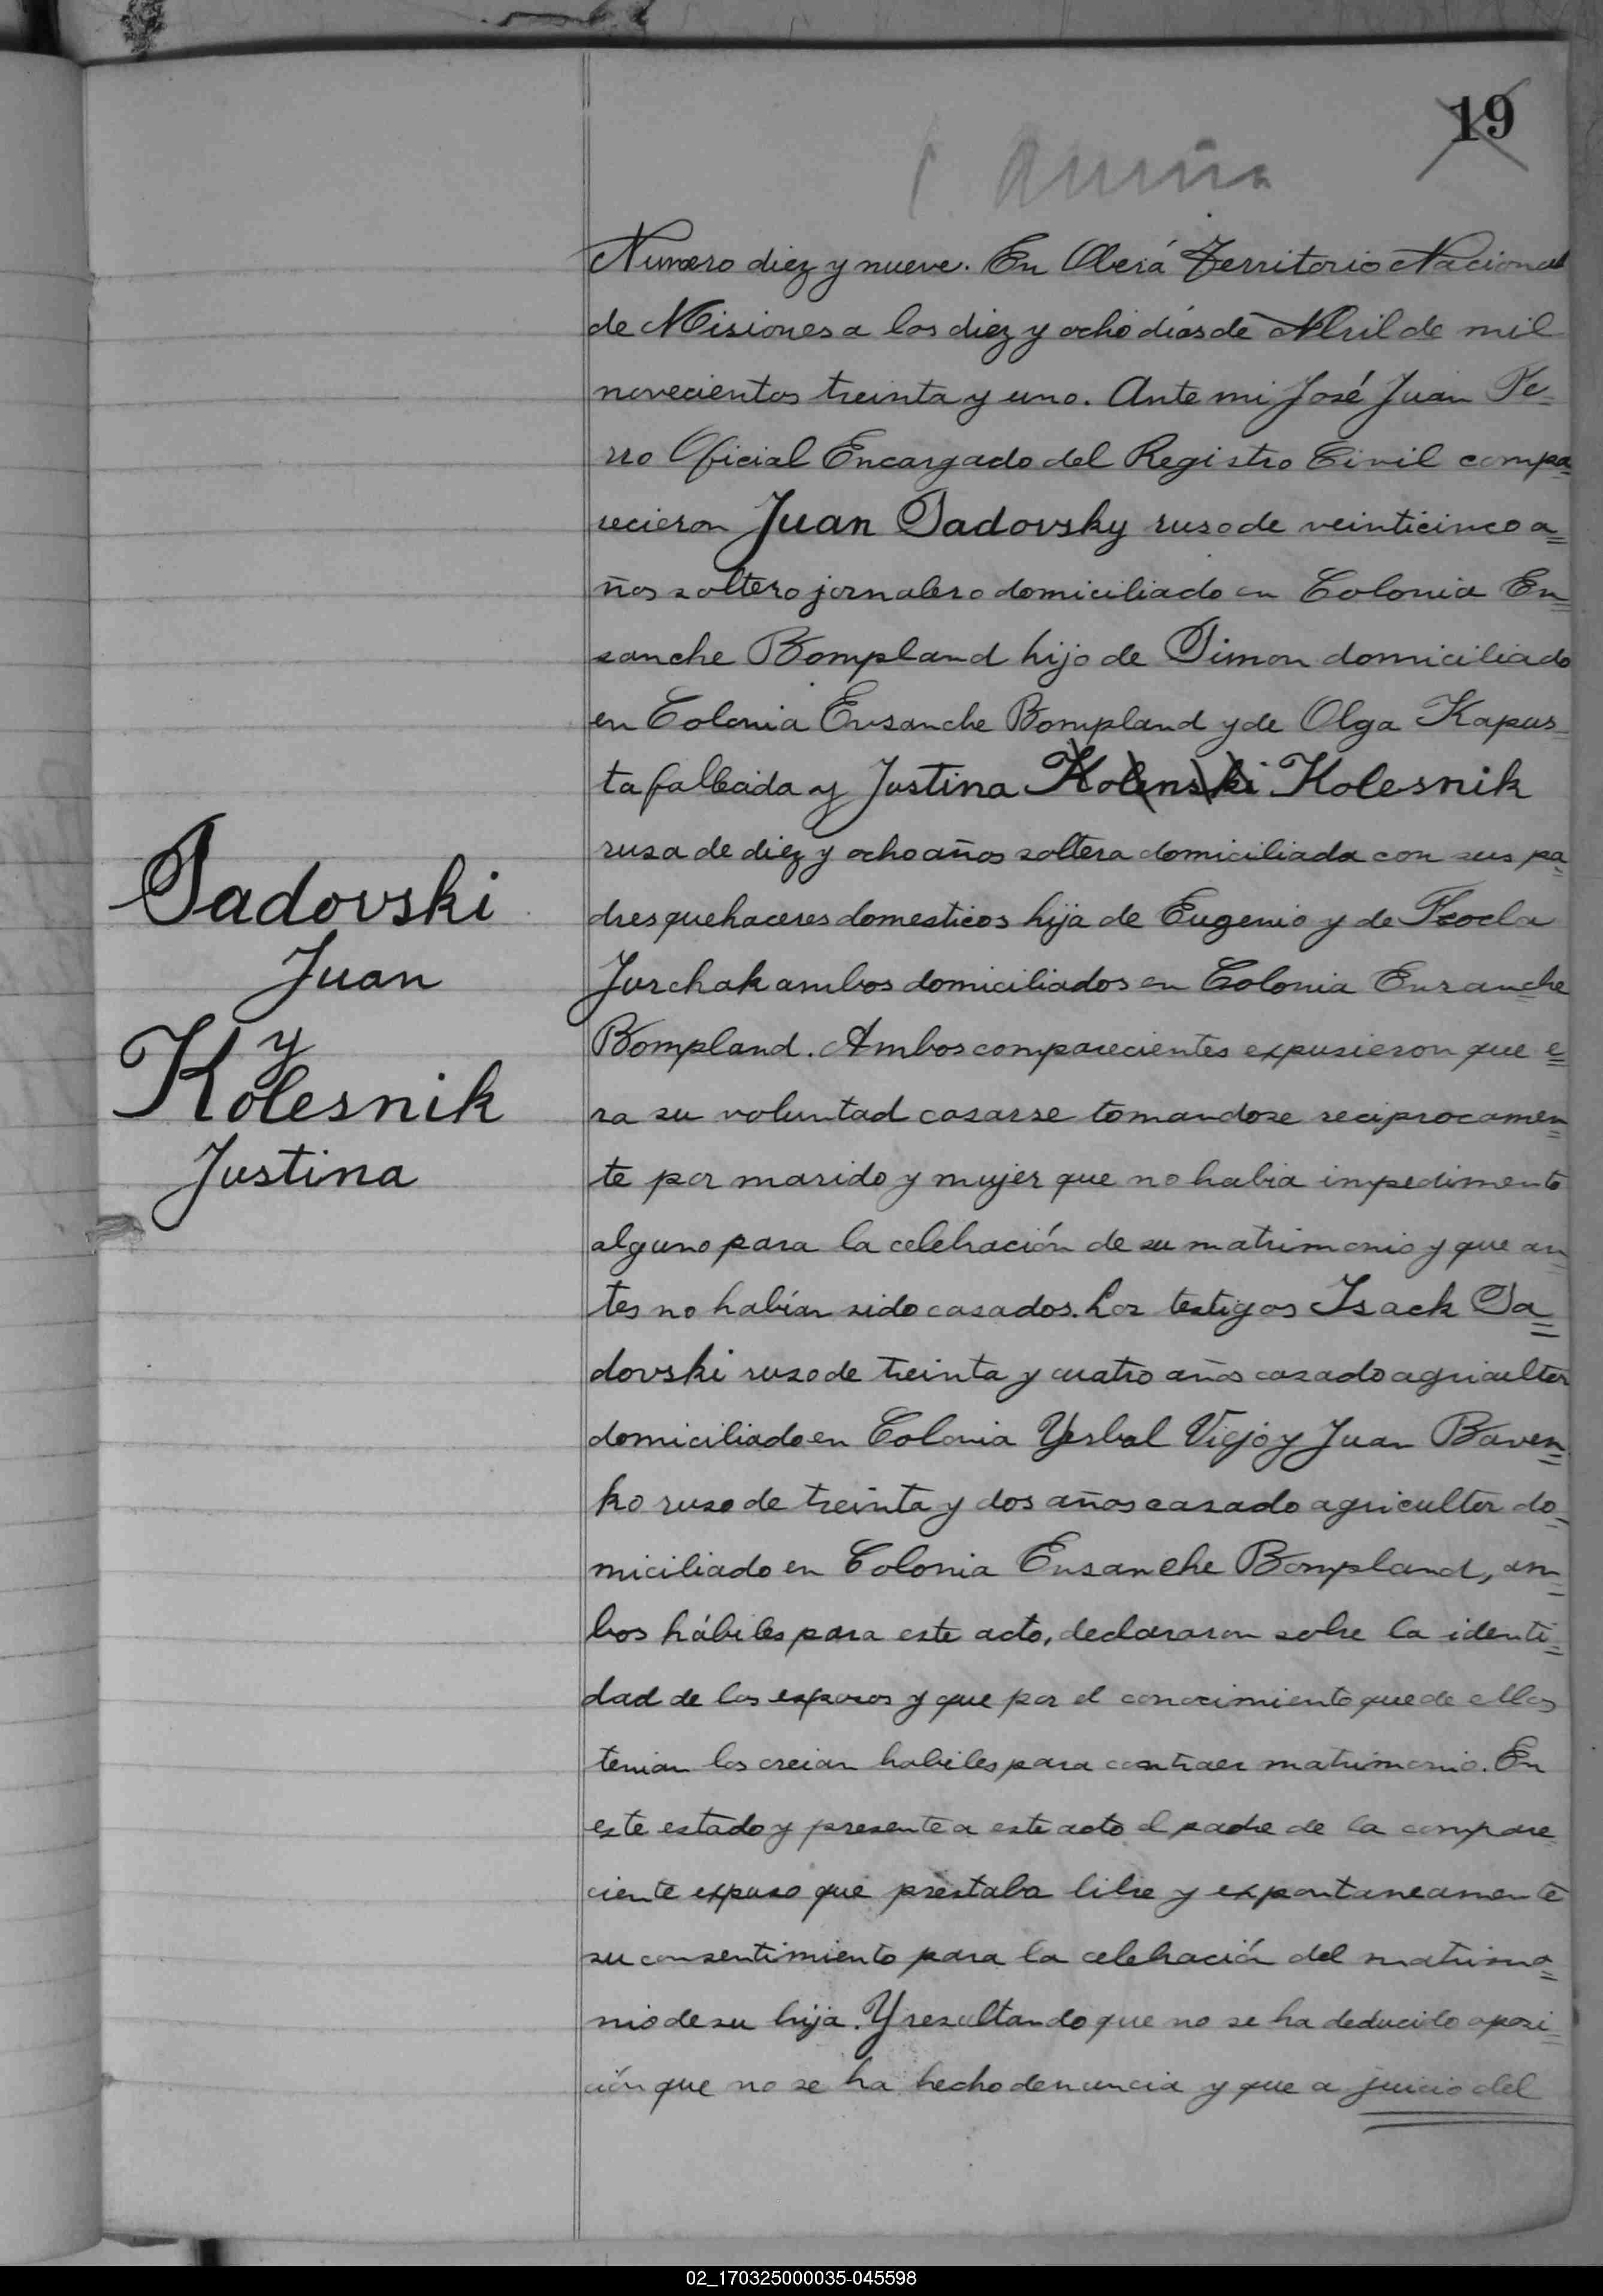 19
Numero diez y nueve. En Oberá Territorio Nacional
de Misiones a los diez y ocho dias de Abril de mil
novecientos treinta y uno. Ante mi José Juan Fe-
rro Oficial Encargado del Registro Civil compa=
recieron Juan Sadovsky ruso de veinticinco a=
ños soltero jornalero domiciliado en Colonia En=
sanche Bompland hijo de Simon domiciliado
en Colonia Ensanche Bompland y de Olga Kapus=
ta fallecida y Justina Kolenski Kolesnik
rusa de diez y ocho años soltera domiciliada con sus pa=
dres quehaceres domesticos hija de Eugenio y de Teocla
Jurchak ambos domiciliados en Colonia Ensanche
Bompland. Ambos comparecientes expusieron que e=
ra su voluntad casarse tomandose reciprocamen=
te por marido y mujer que no habia impedimento
alguno para la celebración de su matrimonio y que an=
tes no habían sido casados. Los testigos Isack Sa=
dovski ruso de treinta y cuatro años casado agricultor
domiciliado en Colonia Yerbal Viejo y Juan Baven=
ko ruso de treinta y dos años casado agricultor do=
miciliado en Colonia Ensanche Bompland, am=
bos hábiles para este acto, declararon sobre la identi=
dad de los esposos y que por el conocimiento que de ellos
tenian los creian habiles para contraer matrimonio. En
este estado y presente a este acto el padre de la compare=
ciente expuso que prestaba libre y expontaneamente
su consentimiento para la celebración del matrimo=
nio de su hija. Y resultando que no se ha deducido oposi=
ción que no se ha hecho denuncia y que a juicio del
Sadovski
Juan
y
Kolesnik
Justina
02_170325000035-045598